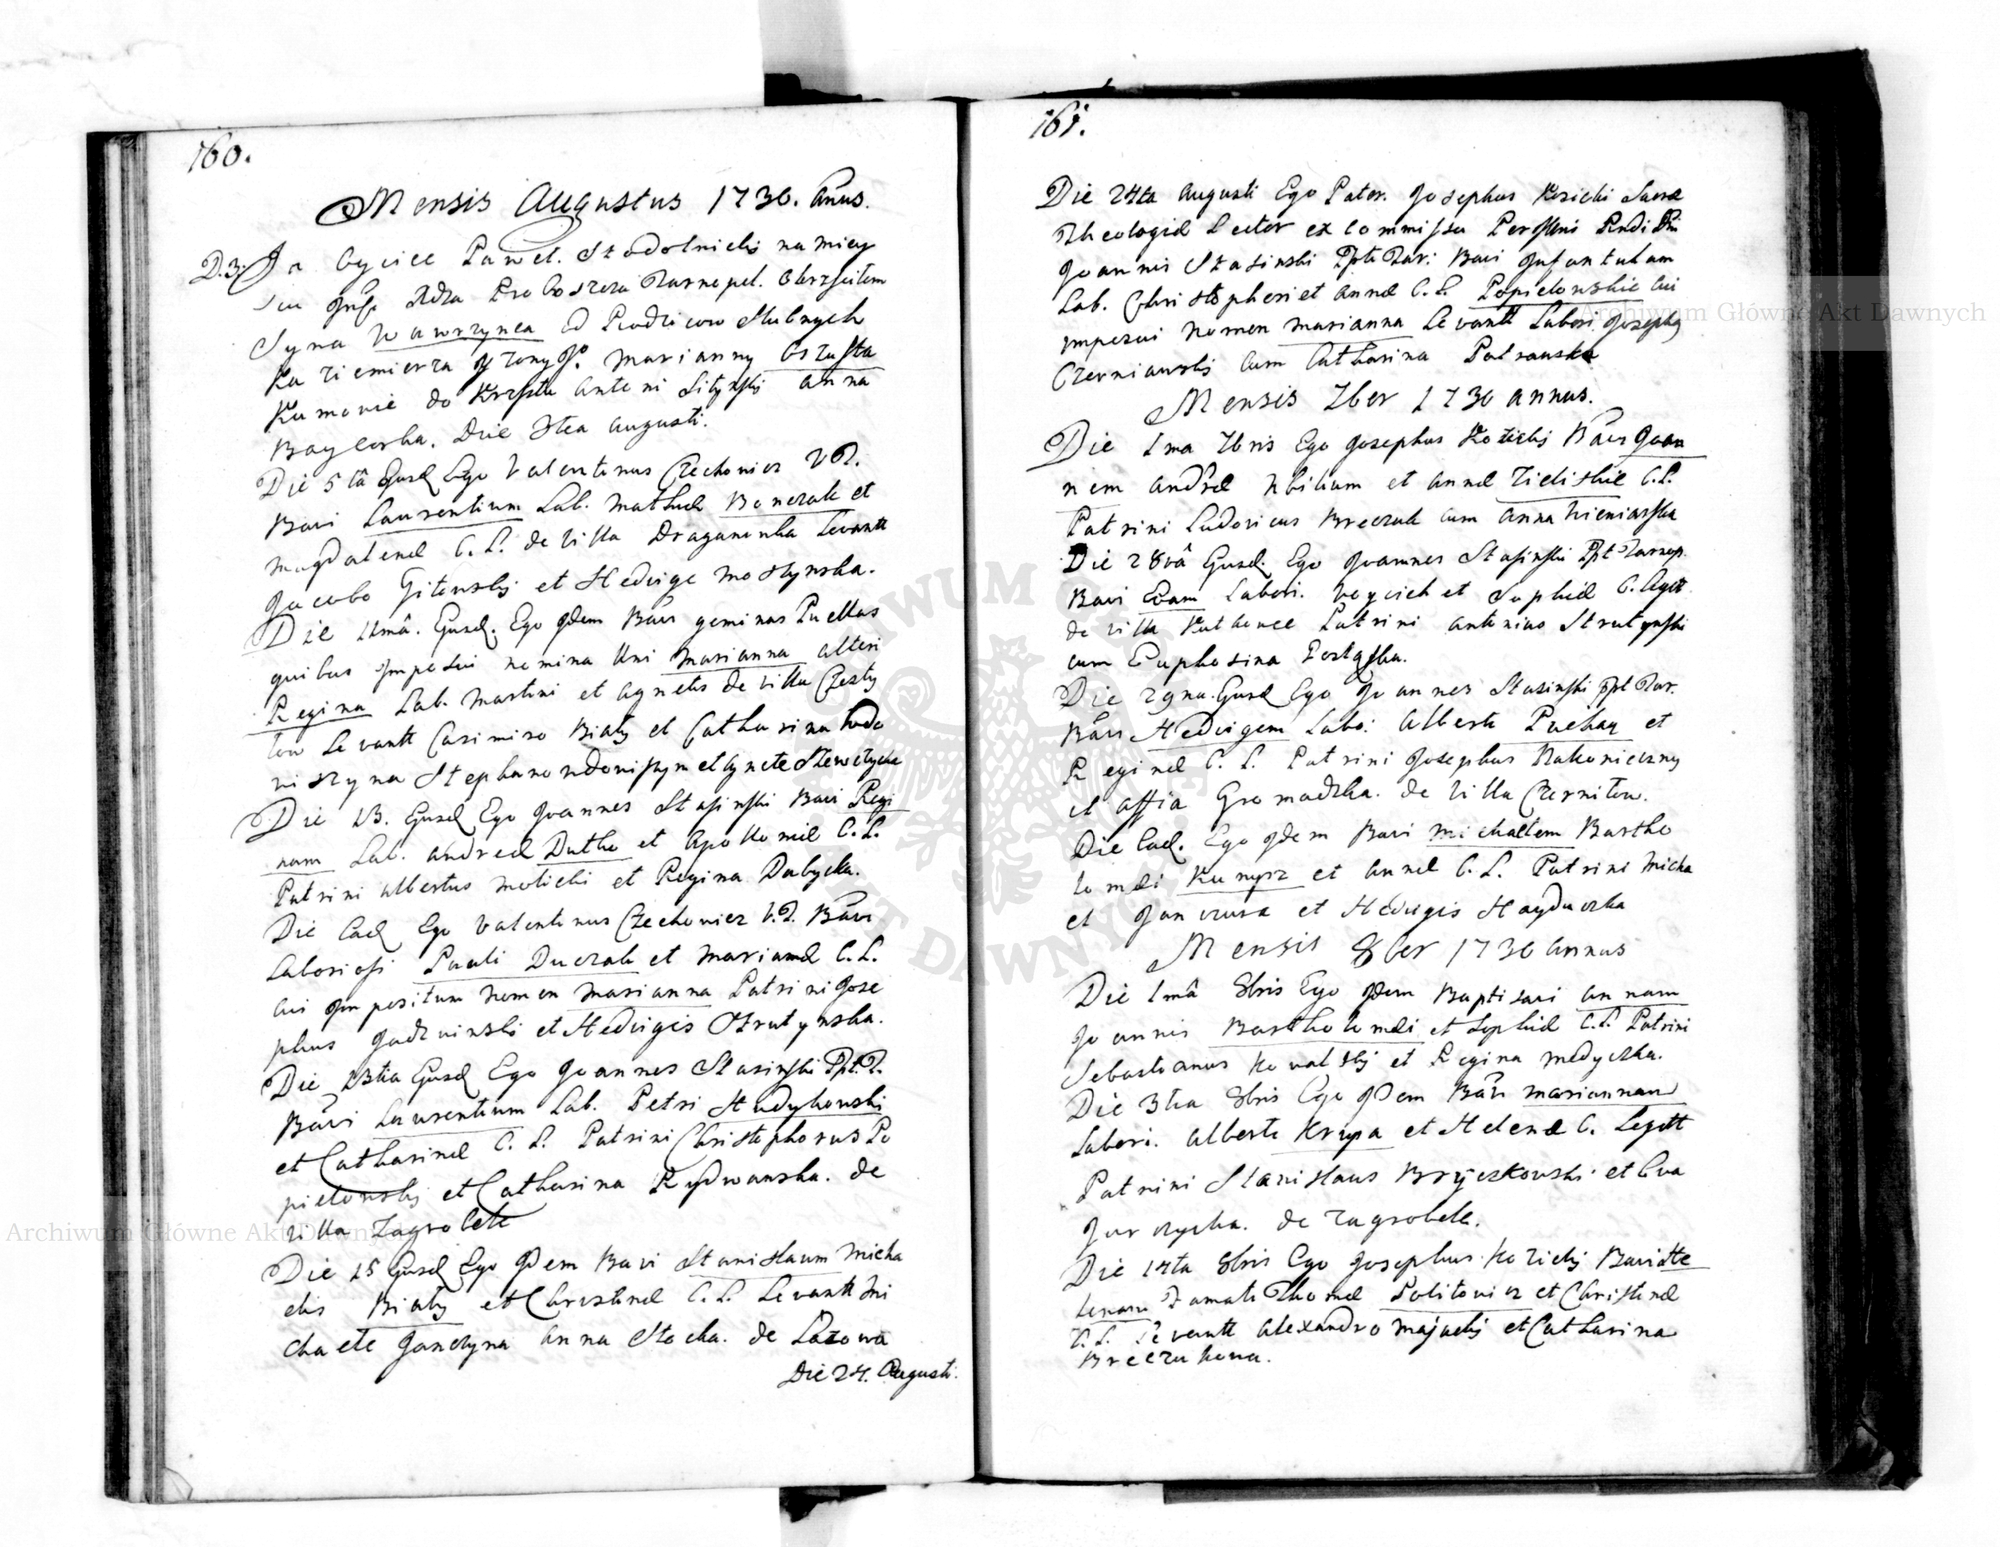 160.
Mensis Augustus 1730. Anus.
D.3. Ja Oyciec Paweł. Szodolnicki na miey
scu Jmsć Xdza Proboszcza Tarnopol. Okrzciłem
Syna Wawrzynca od Rodzicow Slubnych
Kaziemierza y zony Jo. Marianny
Kumowie do Krzstu Antoni Anna
Die 3tia Augusti.
Die 5ta Ejusd Ego Valentinus Czechowicz V P.
Bavi Laurentium Lab. Mathiæ Bonczak et
Magdalenæ C. L. de Villa Draganowka Levantt
Jacobo Gitowski et Hedvige Mostynska.
Die 11mâ. Ejusd. Ego Idem Bavi geminas Puellas
quibus Imposui nomina Uni Marianna alteri
Regina Lab. Martini et Agnetis de Villa
Levantt Casimiro Biały et Catharina
Stephano et Agnete
Die 13. Ejusd Ego Joannes Stasinski Bavi Regi
nam Lab. Andreæ Dutko et Apoloniæ C. L.
Patrini Albertus Molicki et Regina Dubycka.
Die Ead Ego Valentinus Czechowicz V. P. Bavi
Laboriosi Pauli Duczak et Mariannæ C. L.
cui Impositum Nomen Marianna Patrini Jose
phus Jadzwinski et Hedvigis Strutynska.
Die 13tia Ejusd Ego Joannes Stasinski Ppt. T.
Bavi Laurentium Lab. Petri Hudykowski
et Catharinæ C. L. Patrini Christophorus Po
pielowski et Catharina Rydwanska. de
Villa Zagrobele
Die 15 Ejusd Ego Idem Bavi Stanislaum Micha
elis Biały et Christinæ C. L. Levantt Mi
chaele Anna de Łozowa
Die 24. Augusti.
161.
Die 24ta Augusti Ego Pater. Josephus Kozicki Sacræ
Theologiæ Lector ex Commissu Perllris Rndi Dni
Joannis Stasinski Ppti Tar: Bavi Infantulam
Lab. Christopheri et Annæ C. L. Popielowskie cui
Imposui Nomen Marianna Levantt Labori. Josepho
Czerniawski cum Catharina
Mensis 7ber 1730 annus.
Die 1ma 7bris Ego Josephus Kozicki Bavi Joan
nem Andreæ Nbilium et Annæ Zieliskie C. L.
Patrini Ludovicus Breczak cum Anna
Die 28vâ Ejusd. Ego Joannes Stasinski Ppt Tarnop.
Bavi Evam Labori. Voyciech et Sophiæ C. Legtt
de Villa Kutkowce Patrini Antonius Strutynski
cum Euphosina
Die 29na. Ejusd Ego Joannes Stasinski Ppt Tar.
Bavi Hedvigem Labo: Alberti Puchay et
Reginæ C. L. Patrini Josephus Zakonieczny
et Affia Gromadzka. de Villa Czernilow.
Die Ead. Ego Idem Bavi Michaelem Bartho
lomæi Kunysz et Annæ C. L. Patrini Micha
et et Hedvigis Hayduczka
Mensis 8ber 1730 annus
Die 1mâ 8bris Ego Idem Baptisavi Annam
Joannis Bartholomæi et Sophiæ C. L. Patrini
Sebastianus Kowalski et Regina Medyczka.
Die 3tia 8bris Ego Idem Bavi Mariannam
Labori. Alberti Krupa et Helenæ C. Legitt
Patrini Stanislaus Bryczkowski et Eva
Jurczycka. de Zagrobele.
Die 14ta 8bris Ego Josephus Kozicki Bavi He
lenam Famati Thomæ Politowicz et Christinæ
C. L. Levantt Alexandro Majacki et Catharina
Breczukowa.
Archiwum Główne Akt Dawnych
Archiwum Główne Akt Dawnych